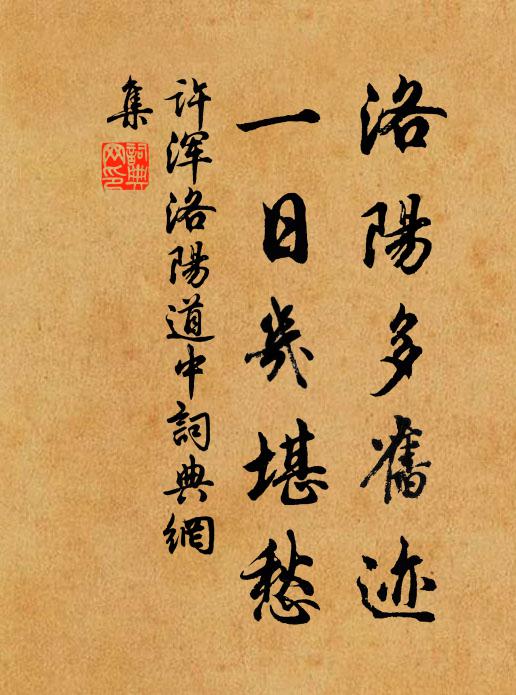 洛陽多舊迹
一日幾堪愁
许浑洛陽道中詞典網
集
詞典網印